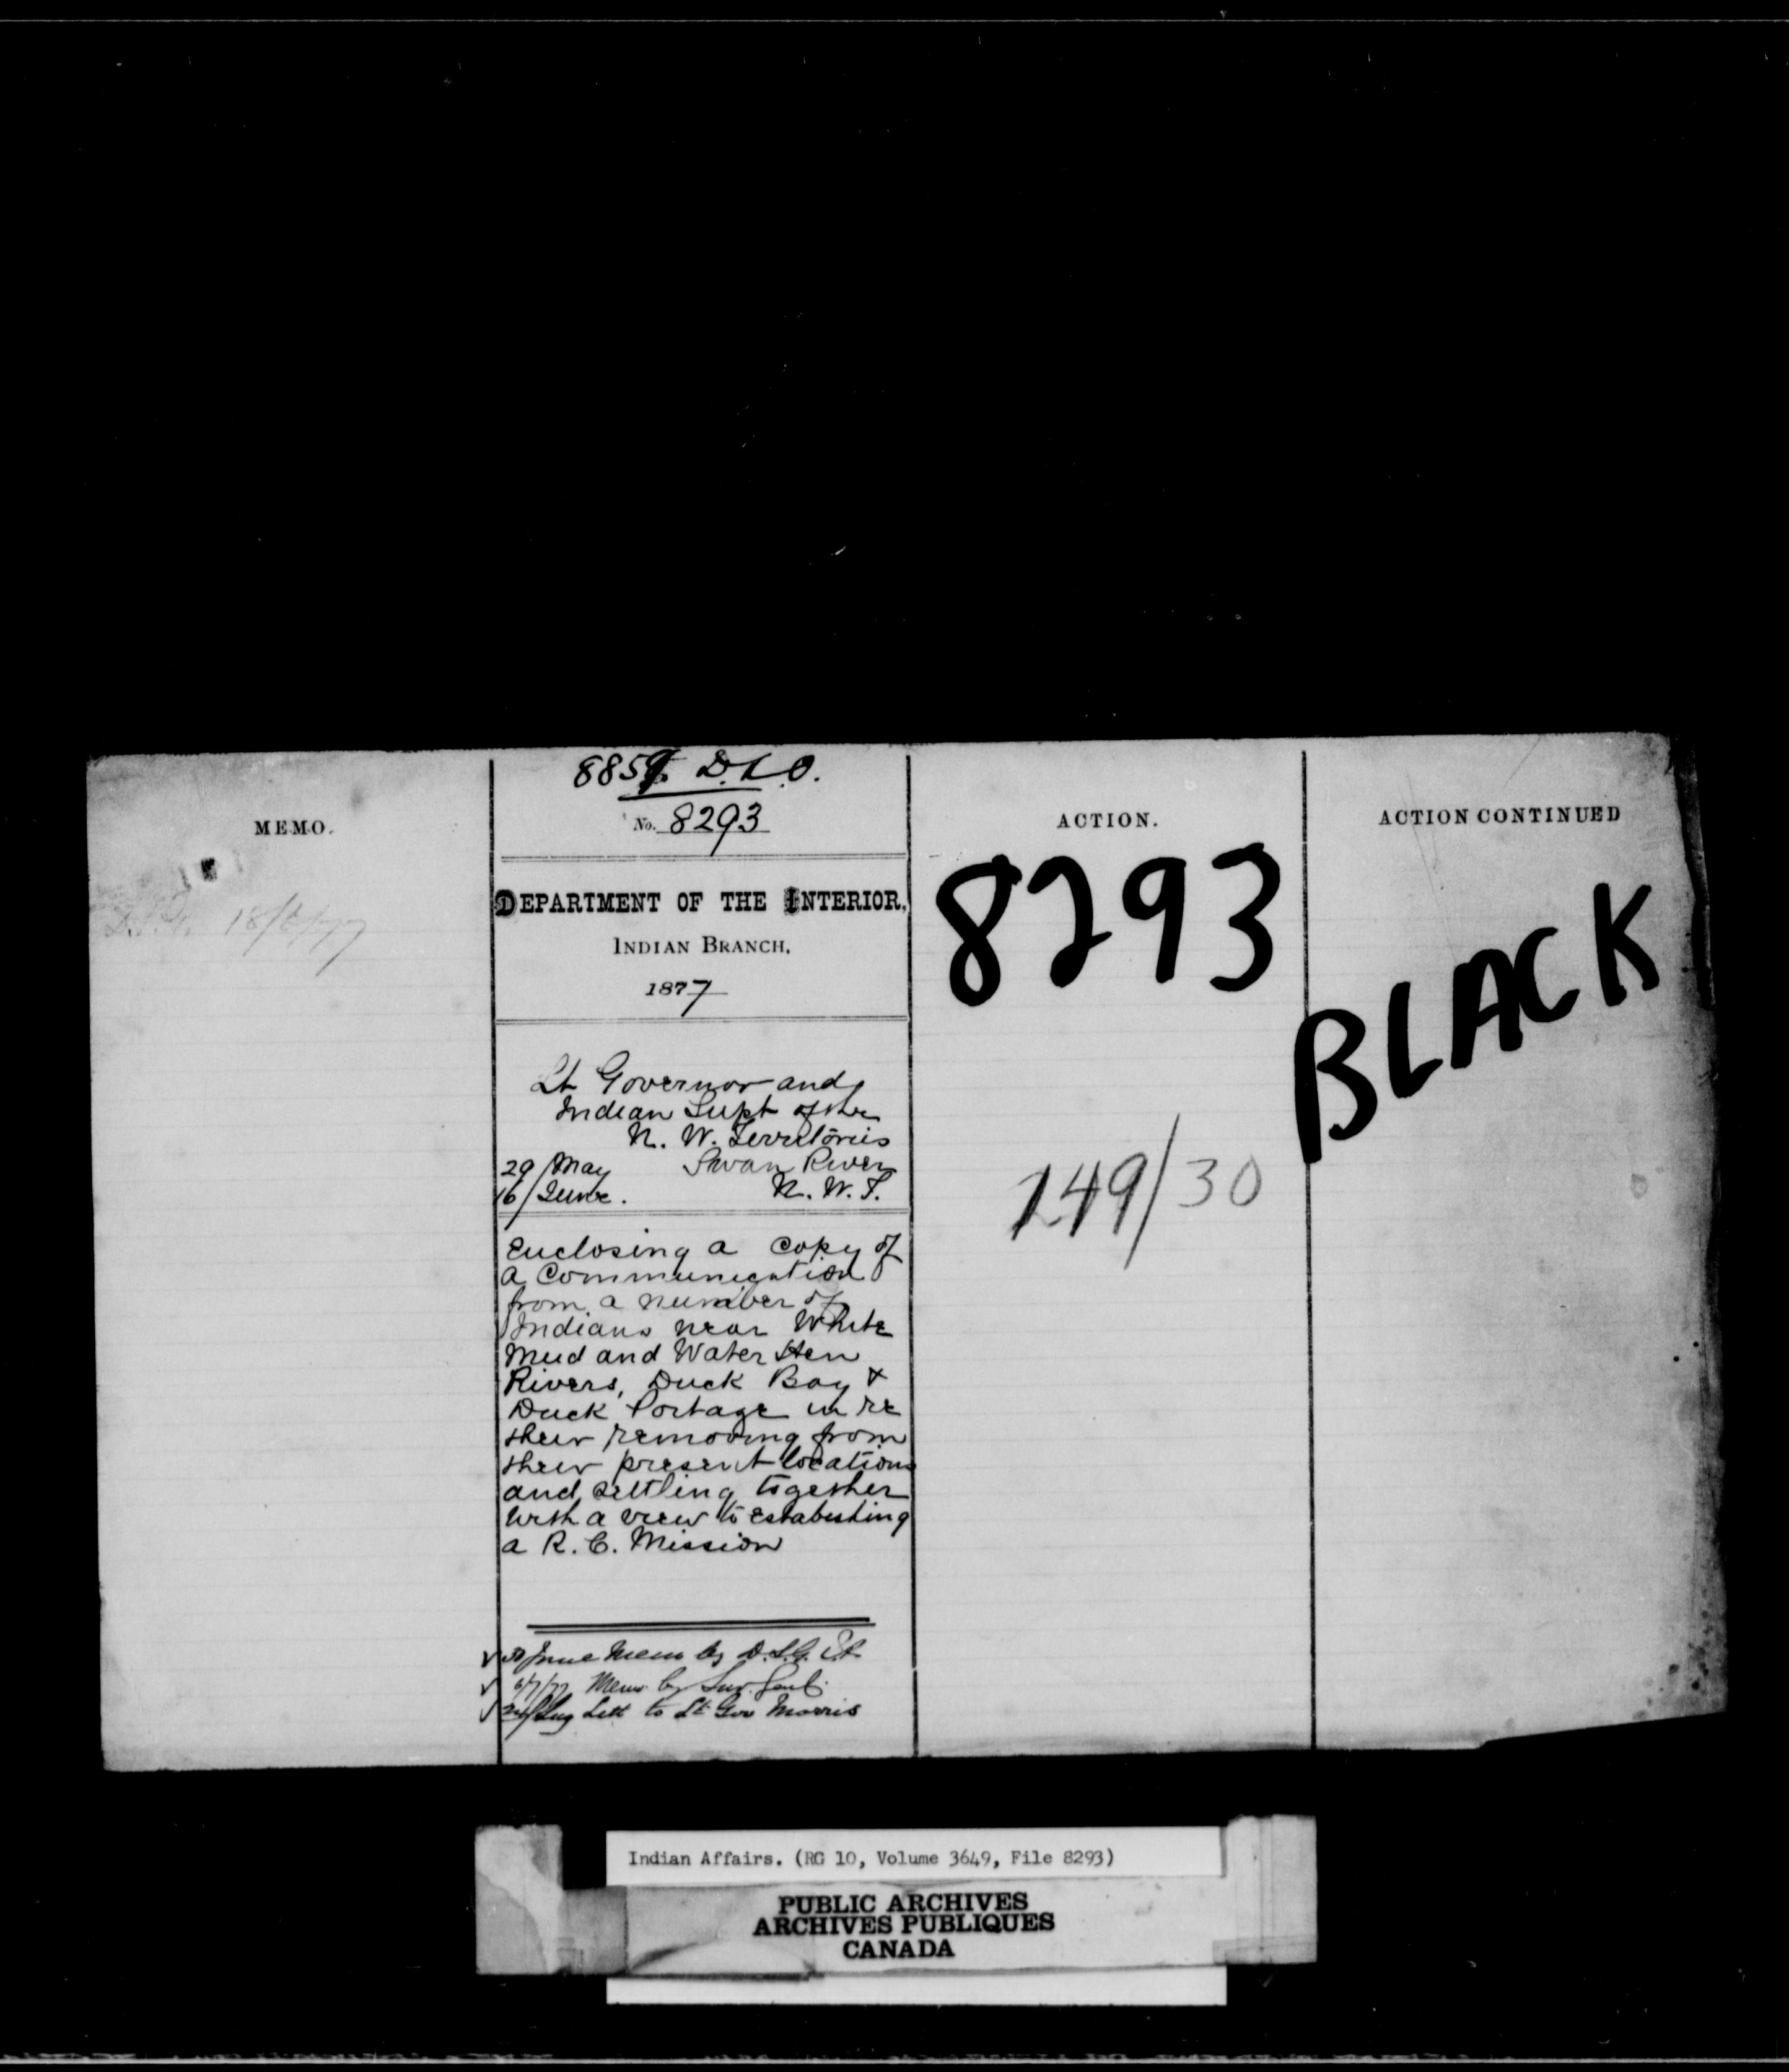 MEMO.
18/6/77
8859 D.L.O.
No. 8293
DEPARTMENT OF THE INTERIOR.
INDIAN BRANCH.
1877
Lt Governor and
Indian Supt of the
N. W. Territories
29/May Swan River
16/June. N. W. T.
Enclosing a copy of
a communication
from a number of
Indians near White
Mud and Water Hen
Rivers, Duck Bay &
Duck Portage in re
their removing from
their present locations
and settling together
with a view to establishing
a R. C. Mission
June Memo by D.S.G.
6/7/77 Memo by Sur. Genl.
Aug Lett to Lt Gov Morris
ACTION.
8293
149/30
ACTION CONTINUED
BLACK
Indian Affairs. (RG 10, Volume 3649, File 8293)
PUBLIC ARCHIVES
ARCHIVES PUBLIQUES
CANADA